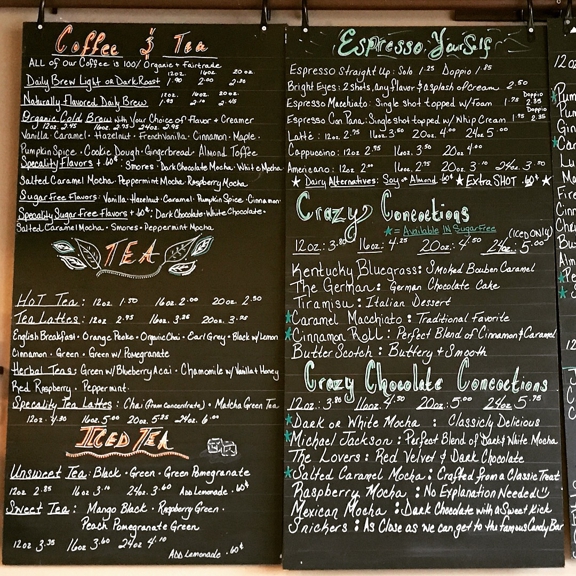 Coffee & Tea
All of our Coffee is 100% Organic & Fairtrade
12oz. 16oz. 20oz.
Daily Brew Light or Dark Roast 1.90 2.00 2.30
12oz. 16oz. 20oz.
Naturally Flavored Daily Brew 1.95 2.10 2.45
Organic Cold Brew with Your Choice of Flavor & Creamer
12oz. 2.45 16oz. 2.95 24oz. 3.95
Vanilla · Caramel · Hazelnut · French Vanilla · Cinnamon · Maple ·
Pumpkin Spice · Cookie Dough · Gingerbread · Almond Toffee
Speciality Flavors + .60¢ : Smores · Dark Chocolate Mocha · White Mocha
Salted Caramel Mocha · Peppermint Mocha · Raspberry Mocha
Sugar Free Flavors : Vanilla · Hazelnut · Caramel · Pumpkin Spice · Cinnamon
Speciality Sugar Free Flavors + .60¢ : Dark Chocolate · White Chocolate ·
Salted Caramel Mocha · Smores · Peppermint Mocha
TEA
Hot Tea : 12oz 1.50 16oz. 2.00 20oz. 2.50
Tea Lattes : 12oz. 2.75 16oz. 3.35 20oz. 3.95
English Breakfast · Orange Peoke · Organic Chai · Earl Grey · Black w/ Lemon
Cinnamon · Green · Green w/ Pomegranate
Herbal Teas : Green w/ Blueberry Acai · Chamomile w/ Vanilla & Honey
Red Raspberry · Peppermint
Speciality Tea Lattes : Chai (From Concentrate) · Matcha Green Tea
12oz. 4.50 16oz. 5.00 20oz. 5.25 24oz. 6.00
ICED TEA
Unsweet Tea : Black · Green · Green Pomegranate
12oz 2.85 16oz 3.10 24oz. 3.60 Add Lemonade .60¢
Sweet Tea : Mango Black · Raspberry Green ·
Peach Pomegranate Green
12oz 3.35 16oz 3.60 24oz 4.10
Add Lemonade .60¢
Espresso Yourself
Espresso Straight Up : Solo 1.25 Doppio 1.85
Bright Eyes : 2 Shots, any Flavor & a splash of cream 2.50
Doppio
Espresso Macchiato : Single shot topped w/ Foam 1.75 2.35
Doppio
Espresso Con Pana : Single shot topped w/ Whip Cream 1.75 2.35
Latte : 12oz. 2.95 16oz. 3.50 20oz. 4.00 24oz 5.00
Cappuccino : 12oz. 2.95 16oz. 3.50 20oz. 4.00
Americano : 12oz. 2.00 16oz. 2.75 20oz. 3.10 24oz. 3.50
★ Dairy Alternatives : Soy or Almond .60¢ ★ Extra SHOT .60¢ ★
Crazy Concoctions
★ = Available IN Sugar Free
(ICED ONLY)
12oz : 3.80 16oz : 4.25 20oz : 4.50 24oz : 5.00
Kentucky Bluegrass : Smoked Bouben Caramel
The German : German Chocolate Cake
Tiramisu : Italian Dessert
★ Caramel Macchiato : Traditional Favorite
★ Cinnamon Roll : Perfect Blend of Cinnamon & Caramel
Butter Scotch : Buttery & Smooth
Crazy Chocolate Concoctions
12oz. : 3.95 16oz : 4.50 20oz : 5.00 24oz 5.75
★ Dark or White Mocha : Classicly Delicious
★ Michael Jackson : Perfect Blend of Dark & White Mocha
The Lovers : Red Velvet & Dark Chocolate
★ Salted Caramel Mocha : Crafted from a Classic Treat
Raspberry Mocha : No Explanation Needed
Mexican Mocha : Dark Chocolate with a Sweet Kick
Snickers : As Close as we can get to the famous Candy Bar